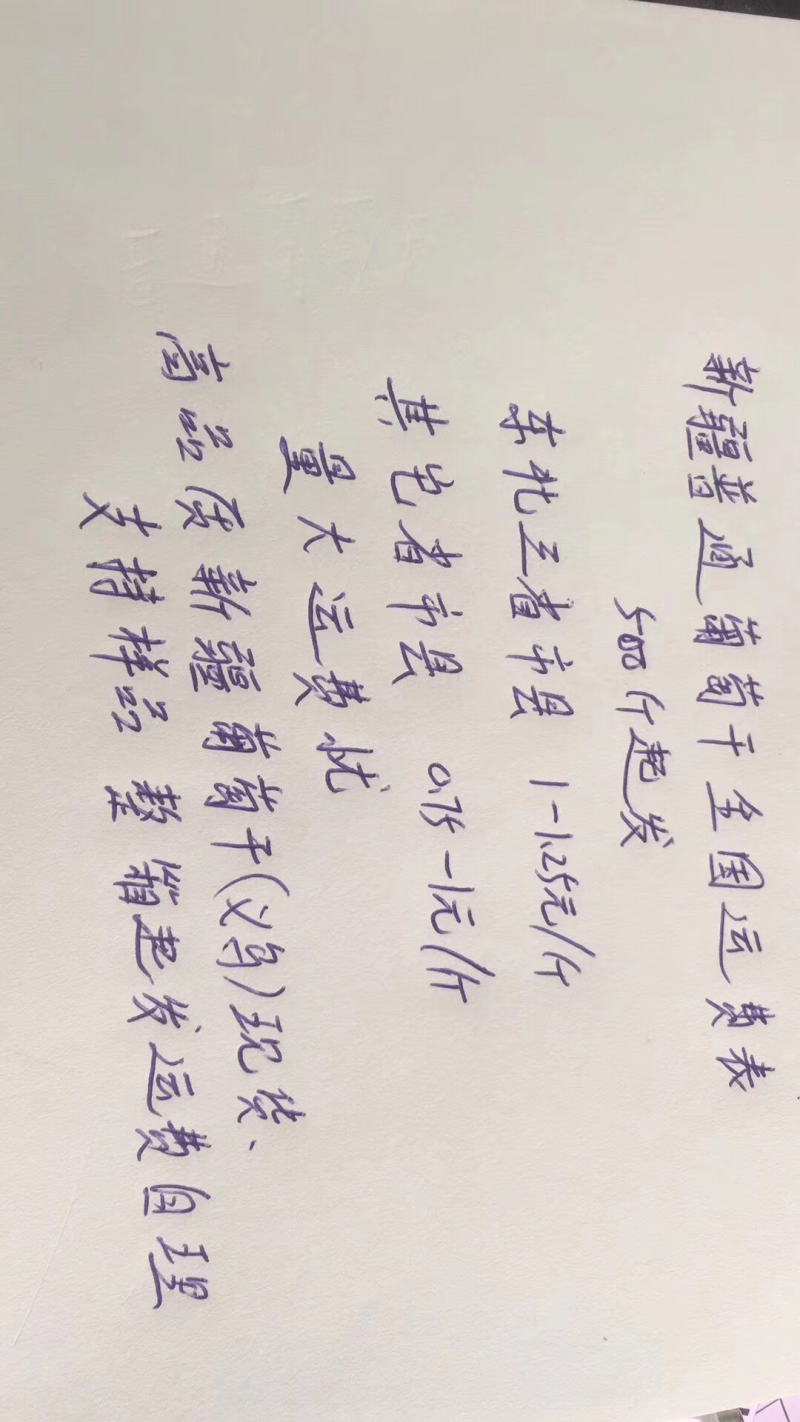 新疆普通葡萄干全国运费表
500斤起发
东北三省市县 1-1.25元/斤
其它省市县 0.75-1元/斤
量大运费优
高品质新疆葡萄干(义乌)现货、
支持样品 整箱起发运费自理